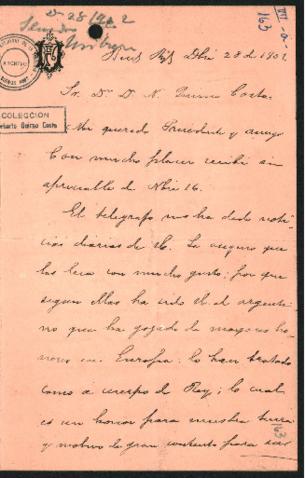 Dr 28/902
163
COLECCION
Norberto Quirno Costa
Dbre 28 de 1902.
Sr. Dr. D. N. Quirno Costa.
Mi querido Presidente y amigo
Con mucho placer recibí su
apreciable de Nbre 16.
El telégrafo nos ha dado noti-
cias diarias de Vd. Le aseguro que
las leia con mucho gusto; por que
segun ellas ha sido Vd. el argenti-
no que ha gozado de mayores ho-
nores en Europa: lo han tratado
como a cuerpo de Rey; lo cual
es un honor para nuestra tierra
y motivo de gran contento para sus
163